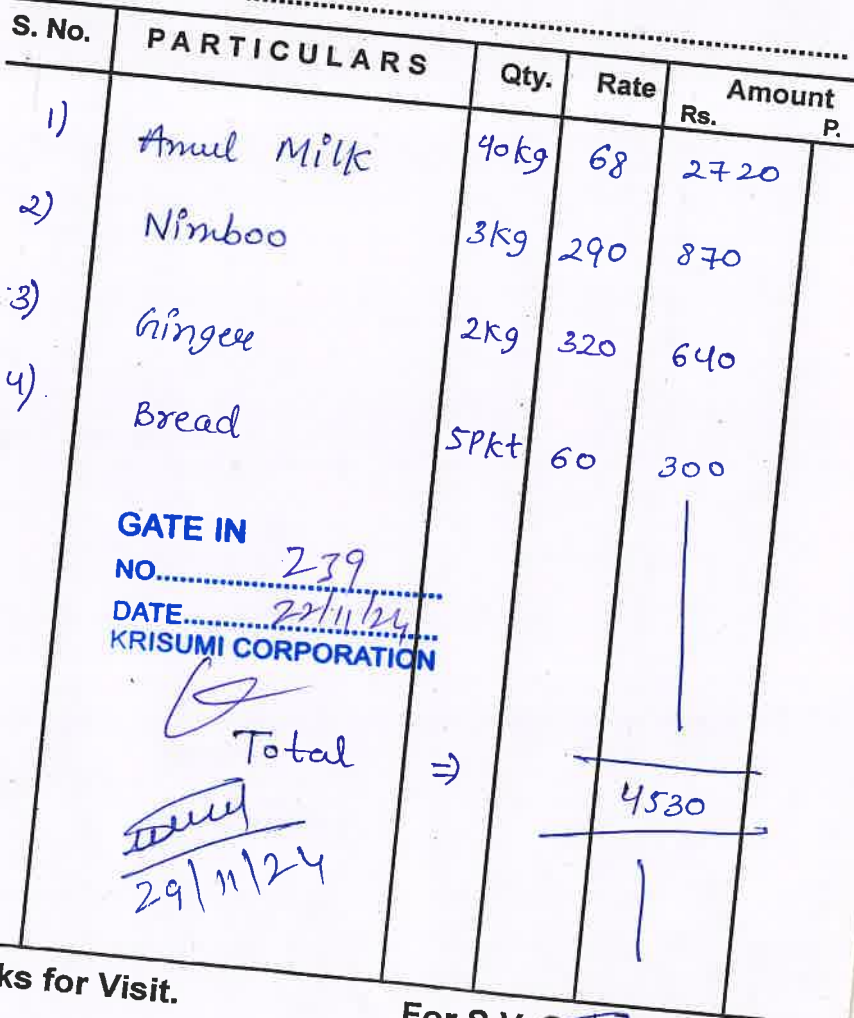 S. No. PARTICULARS Qty. Rate Amount
Rs. P.
1) Amul Milk 40kg 68 2720
2) Nimboo 3kg 290 870
3) Ginger 2kg 320 640
4) Bread 5Pkt 60 300
GATE IN
NO. 239
DATE 22/11/24
KRISUMI CORPORATION
Total ⇒ 4530
29/11/24
ks for Visit.
For S.V.